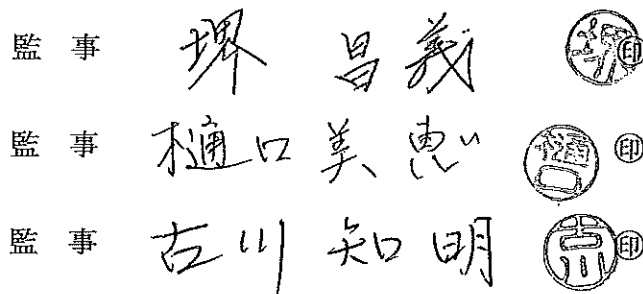 監事 堺 昌義 ㊞
監事 樋口 美恵 樋口 ㊞
監事 古川 知明 古川 ㊞